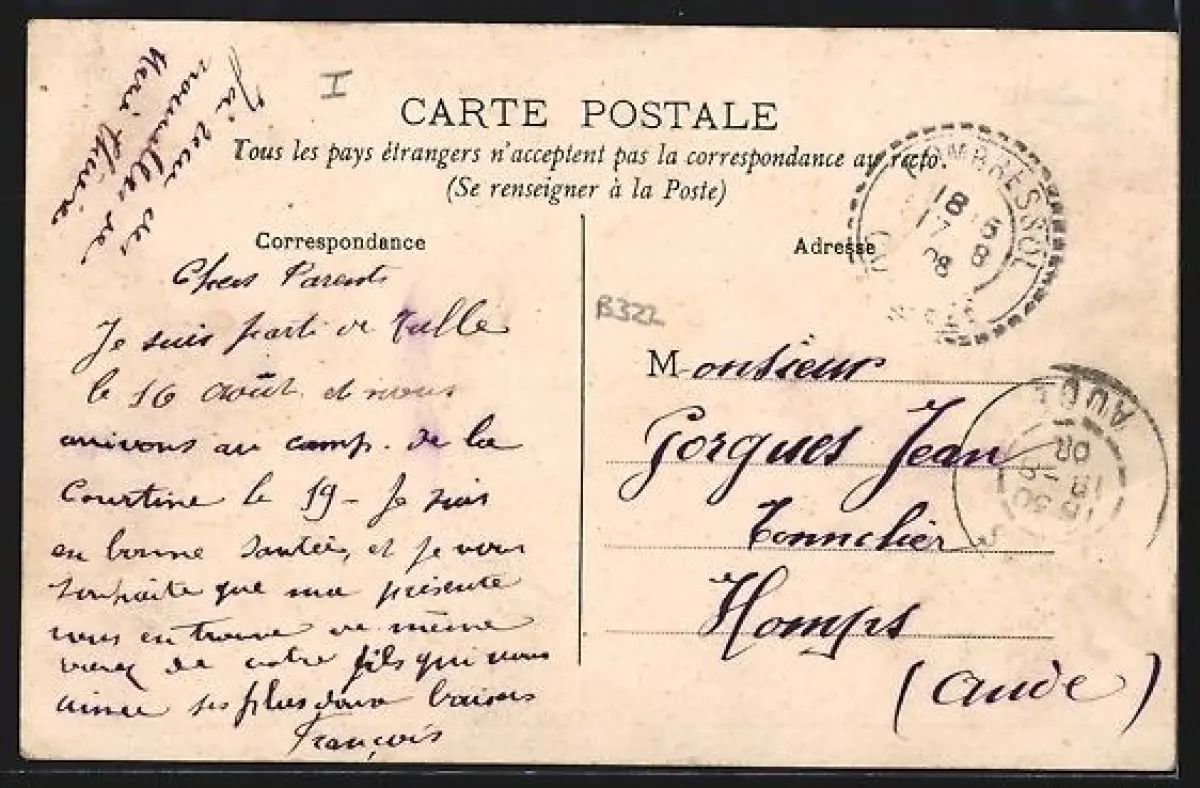 J'ai reçu des
nouvelles de
I
CARTE POSTALE
Tous les pays étrangers n'acceptent pas la correspondance au recto.
(Se renseigner à la Poste)
Correspondance
Adresse
Chers Parents
Je suis parti de Tulle
le 16 août et nous
arrivons au camp de la
Courtine le 19 - Je suis
en bonne santée, et je vous
souhaite que ma présente
vous en trouve de même
recevez de votre fils qui vous
aime ses plus doux baisers
François
B322
Monsieur
Gorgues Jean
Tonnelier
Homps
(Aude)
18
17 8
08
AUDE